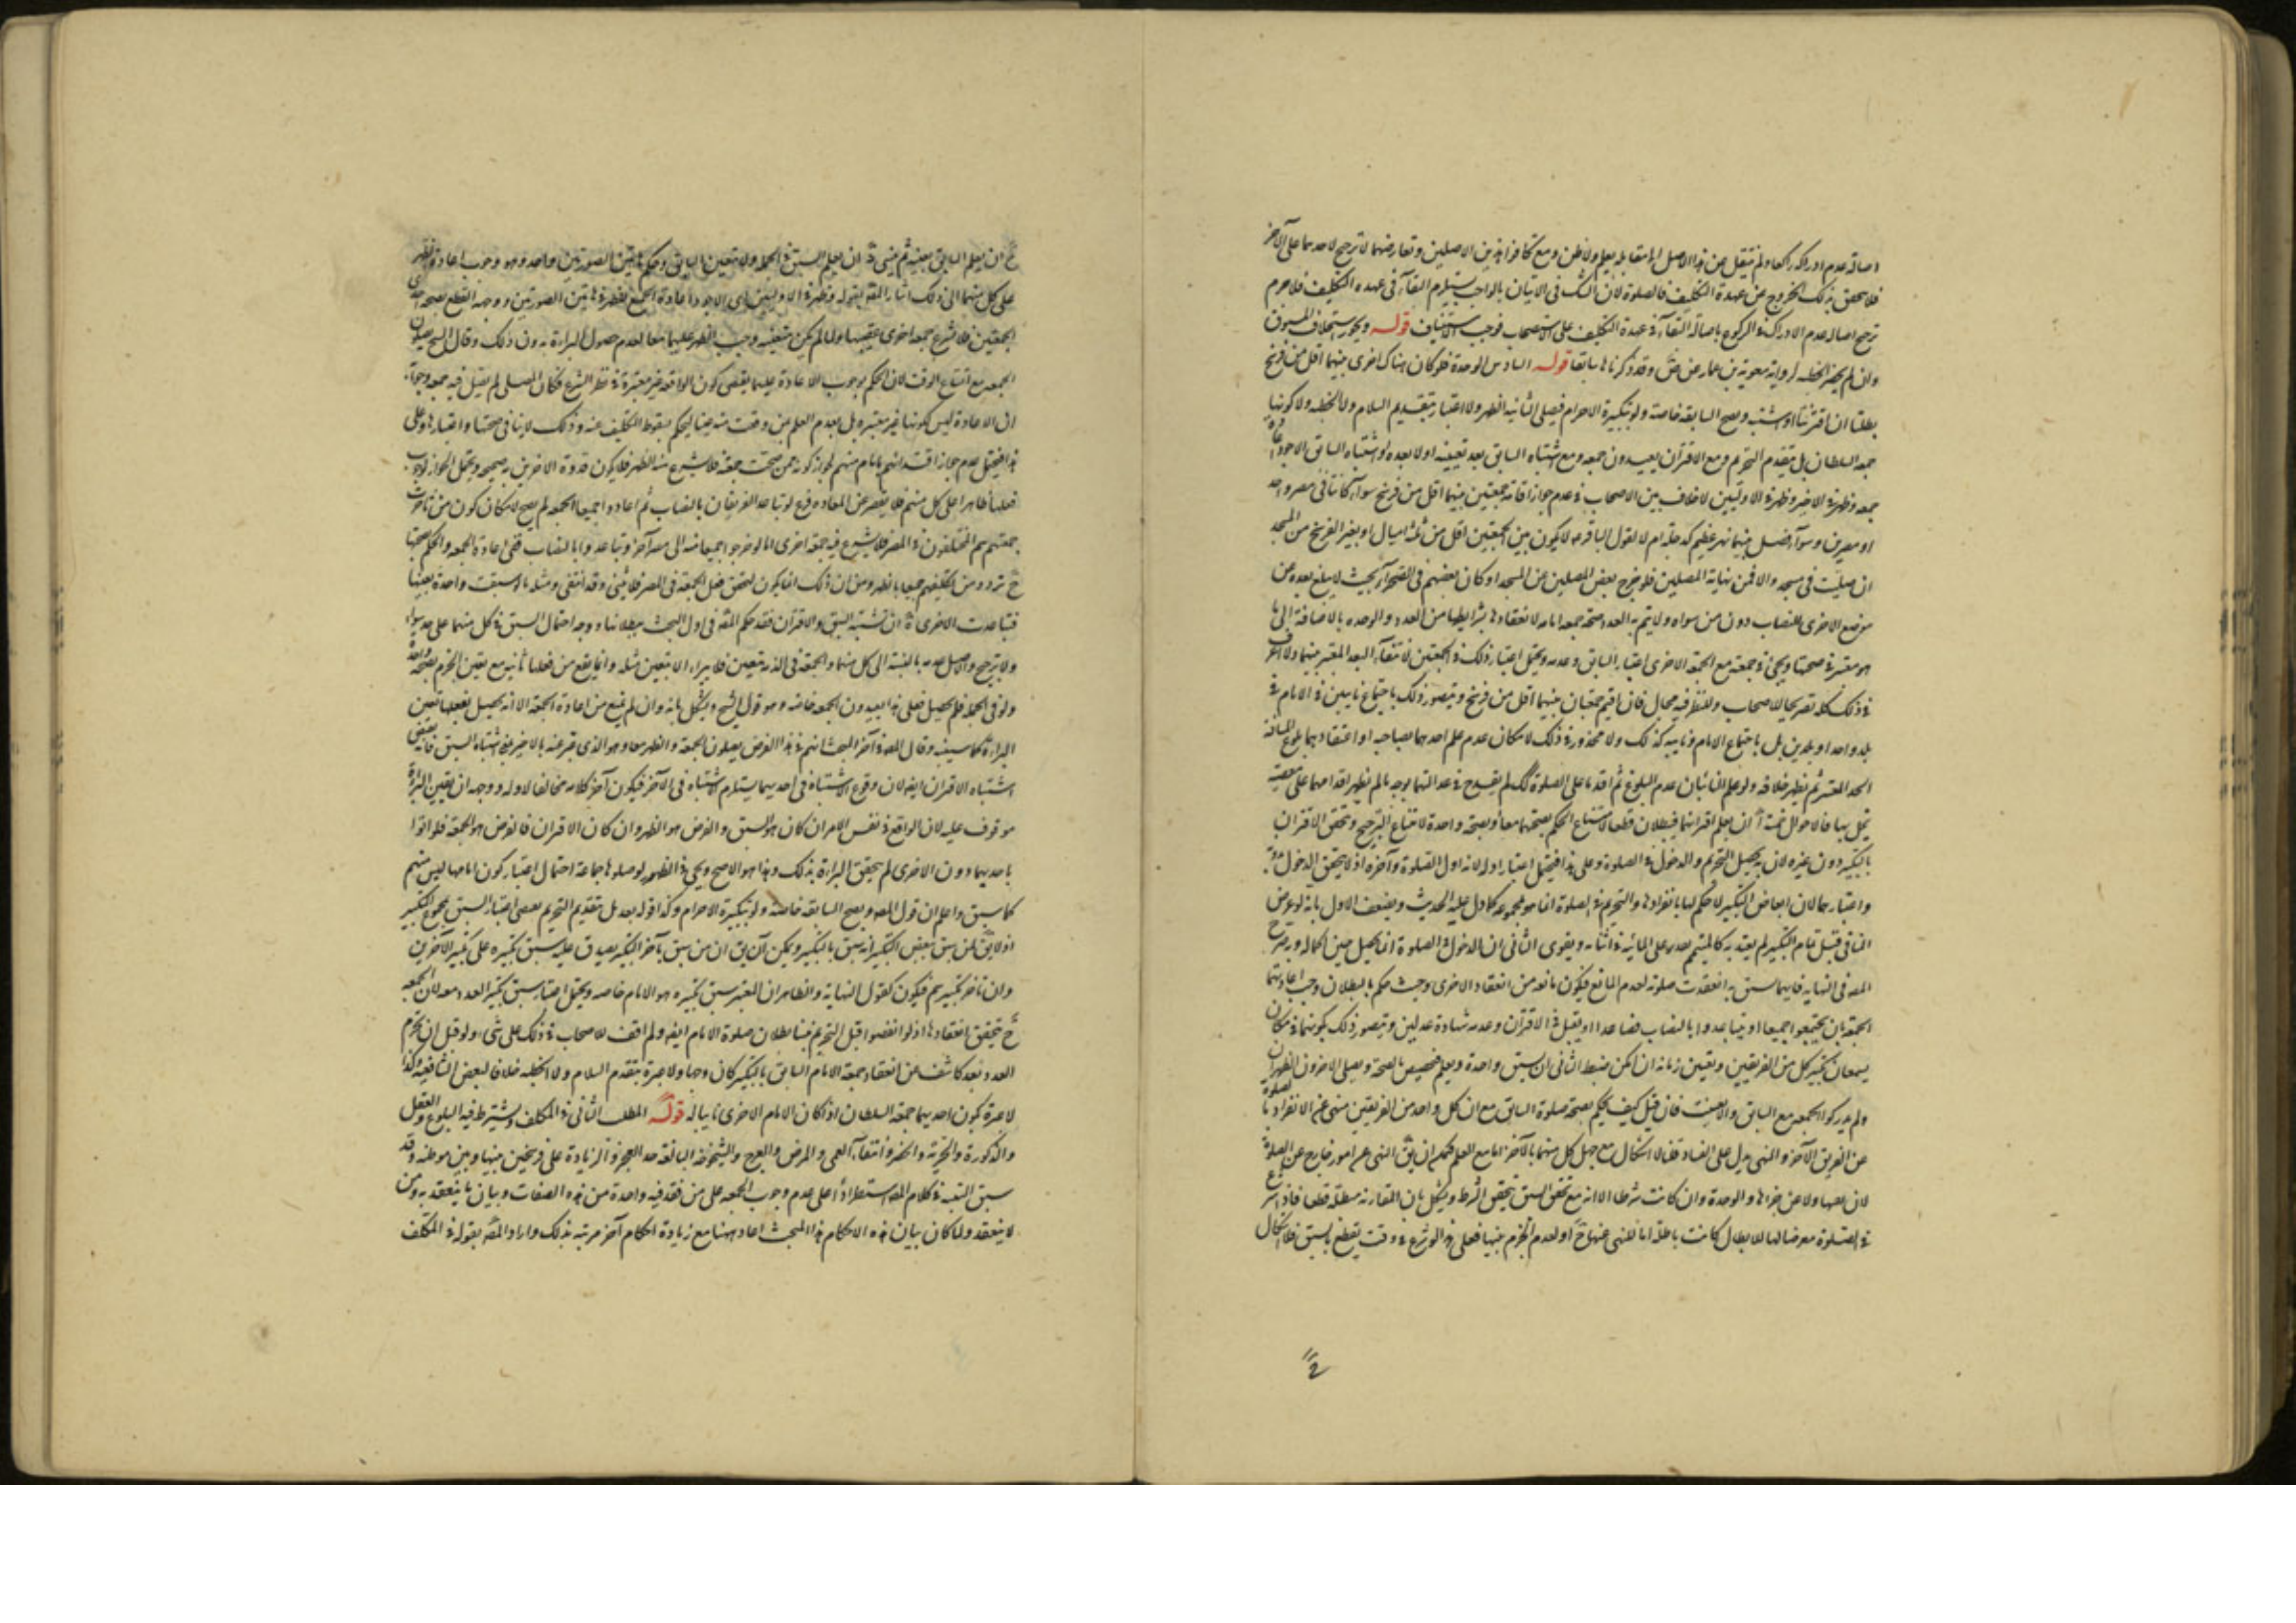 اصالة عدم ادراكه راكعا ولم ينتقل عن هذا الاصل الى مقابله بعلم ولا ظن ومع تكافؤ هذين الاصلين وتعارضهما لا ترجيح لاحدهما على الآخر
فلا يتحقق بذلك الخروج عن عهدة التكليف بالصلوة لان الشك في الاتيان بالواجب يستلزم البقآء في عهدة التكليف فلا جرم
ترجح اصالة عدم الادراك في الركوع باصالة البقآء في عهدة التكليف على الاستصحاب فوجب الاستيناف قوله ويجوز استخلاف المسبوق
وان لم يحضر الخطبة لرواية معوية بن عمار عن ص وقد ذكرناها سابقا قوله السادس الوحدة فلو كان هناك اخرى بينهما اقل من فرسخ
بطلتا ان اقترنتا او اشتبه وتصح السابقة خاصة ولو بتكبيرة الاحرام فيصلي الثانية الظهر ولا اعتبار بتقديم السلام ولا الخطبة ولا كونها
جمعة السلطان بل بتقدم التحريم ومع الاقتران يعيدون جمعة ومع اشتباه السابق بعد تعيينه اولا بعده او اشتباه السابق الاجود اعادة
جمعة وظهر في الاخير وظهر في الاوليين لا خلاف بين الاصحاب في عدم جواز اقامة جمعتين بينهما اقل من فرسخ سوآء كانتا في مصر واحد
او مصرين وسوآء فصل بينهما نهر عظيم كدجلة ام لا لقول الباقر ع لا يكون بين الجمعتين اقل من ثلثة اميال او يعتبر الفرسخ من المسجد
ان صليت في مسجد والا فمن نهاية المصلين فلو خرج بعض المصلين عن المسجد او كان بعضهم في الصحرآء بحيث لا يبلغ بعده عن
موضع الاخرى النصاب دون من سواه ولا يتم به العدد صحة جمعة امامه لانعقادها بشرايطها من العدد والوحدة بالاضافة الى ما
هو معتبر في صحتها ويجئ في جمعته مع الجمعة الاخرى اعتبار السابق وعدمه ويحتمل اعتبار ذلك في الجمعتين لانتفآء البعد المعتبر بينهما ولا اعرف
في ذلك كله تصريحا للاصحاب وللنظر فيه مجال فان اقيم جمعتان بينهما اقل من فرسخ ويتصور ذلك باجتماع نايبين في الامام في
بلد واحد او بلدين بل باجتماع الامام ونايبه كذلك ولا محذور في ذلك لامكان عدم علم احدهما بصاحبه او اعتقادهما بلوغ المسافة
الحد المعتبر ثم يظهر خلافه ولو علم النائبان عدم البلوغ ثم اقدما على الصلوة كك لم يقدح في عدالتهما بوجه ما لم يظهر اقدامهما على معصية
تخل بها فالاحوال خمسة آ ان يعلم اقترانهما فيبطلان قطعا لامتناع الحكم بصحتهما معا وبصحة واحدة لامتناع الترجيح وتحقق الاقتران
بالتكبير دون غيره لان به يحصل التحريم والدخول في الصلوة وعلى هذا فيحتمل اعتبار اوله لانه اول الصلوة وآخره اذ لا يتحقق الدخول بدونه
واعتبارهما لان ابعاض التكبير لا حكم لها بانفرادها والتحريم في الصلوة انما هو بمجموعه كما دل عليه الحديث ويضعف الاول بانه لو عرض
المنافي قبل تمام التكبير لم يعتد به كالمتيمم يقدر على المائية في اثنائه ويقوى الثاني ان الدخول في الصلوة انما يحصل حين اكماله وبه صرح
المصه في النهاية فايهما سبق به انعقدت صلوته لعدم المانع فيكون مانعه من انعقاد الاخرى وحيث حكم بالبطلان وجب اعادتهما
الجمعة بان يجتمعوا جميعا او يتباعدوا بالنصاب فصاعدا ويقبل في الاقتران وعدمه شهادة عدلين ويتصور ذلك بكونهما في مكان
يسمعان تكبير كل من الفريقين وتعيين زمانه ان امكن ضبط الثاني ان يسبق واحدة ويعلم فتختص بالصحة ويصلي الاخرون الظهر ان
لم يدركوا الجمعة مع السابق والا تعينت فان قيل كيف يحكم بصحة صلوة السابق مع ان كل واحد من الفريقين منهي عن الانفراد بالصلوة
عن الفريق الآخر والنهي يدل على الفساد قلنا لا اشكال مع جهل كل منهما بالآخر اما مع العلم فيمكن ان يق النهي عن امور خارج عن الصلوة
لان نفسها ولا عن جزئها والوحدة وان كانت شرطا الا انه مع تحقق السبق يتحقق الشرط ويشكل بان المقارنة مبطلة قطعا فاذا شرع
في الصلوة معرضا لها للابطال كانت باطلة اما للنهي عنها ح او لعدم الجزم بنيتها فعلى هذا لو شرع في وقت يقطع بالسبق فلا اشكال
ج ان يعلم السابق بعينه ثم ينسى د ان يعلم السبق في الجملة ولا يتعين السابق وحكم هاتين الصورتين واحد وهو وجوب اعادة الظهر
على كل منهما الى ذلك اشار المصه بقوله وظهر في الاوليين اي الاجود اعادة الجميع الظهر في هاتين الصورتين ووجهه القطع بصحة احدى
الجمعتين فلا تشرع جمعة اخرى عقيبها ولما لم تكن متعينه وجب الظهر عليهما معا لعدم حصول البراءة بدون ذلك وقال الشيخ يصلون
الجمعة مع اتساع الوقت لان الحكم بوجوب الاعادة عليهما يقتضي كون الواقعة غير معتبرة في نظر الشرع فكان المصلى لم يقبل فيه جمعة وجوابه
ان الاعادة ليس لكونها غير معتبرة بل لعدم العلم بمن وقعت منه صحيحا ليحكم بسقوط التكليف عنه وذلك لا ينافي صحتها واعتبارها وعلى
هذا فيحتمل عدم جواز اقتدائهم بامام منهم لجواز كونه ممن صحت جمعته فلا يشرع منه الظهر فلا يكون قدوة الاخرين به صحيحة ويحتمل الجواز لوجوب
فعلها ظاهرا على كل منهم فلا يقصر عن المعادة فرع لو تباعد الفريقان بالنصاب ثم اعادوا جميعا الجمعة لم يصح لامكان كون من تاخرت
جمعتهم هم المتخلفون في المصر فلا يشرع فيه جمعة اخرى اما لو خرجوا جميعا منه الى مصر آخر وتباعدوا بالنصاب ففي اعادة الجمعة والحكم بصحتها
ح تردد من تكليفهم جميعا بالظهر ومن ان ذلك انما يكون لتحقق فعل الجمعة في المصر فلا يثنى وقد انتفى ومثله ما لو سبقت واحدة بعينها
فتباعدت الاخرى ه ان يشتبه السبق والاقتران فقد حكم المصه في اول البحث ببطلانها ووجه احتمال السبق في كل منهما على حد سوآء
ولا ترجيح والاصل عدمه بالنسبة الى كل منهما والجمعة في الذمة بيقين فلا يبراء الا بيقين مثله وانما يقع من فعلها ثانيه مع يقين الجزم بصحة واحدة
ولو في الجملة فلم يحصل فعلى هذا يعيدون الجمعة خاصة وهو قول الشيخ ويشكل بانه وان لم يمنع من اعادة الجمعة الا انه يحصل بفعلها يقين
البراءة كما سيئ وقال المصه في آخر المبحث انهم في هذا الفرض يصلون الجمعة والظهر معا وهو الذي عبر عنه بالاخير من اشتباه السبق فانه يقتضي
اشتباه الاقتران ايضا لان وقوع الاشتباه في احديهما يستلزم الاشتباه في الآخر فيكون آخر كلامه مخالفا لاوله ووجهه ان يقين البراءة
موقوف عليه لان الواقع في نفس الامر ان كان هو السبق فالفرض هو الظهر وان كان الاقتران فالفرض هو الجمعة فلو اتوا
باحديهما دون الاخرى لم يتحقق البراءة بذلك وهذا هو الاصح ويجئ في الظهر لو صلوها جماعة احتمال اعتبار كون امامها ليس منهم
كما سبق واعلم ان قول المصه وتصح السابقة خاصة ولو بتكبيرة الاحرام وكذا قوله بعد بل بتقديم التحريم يقتضي اعتبار السبق بمجموع التكبير
اذ لا يق لمن سبق ببعض التكبير انه سبق بالتكبير ويمكن ان يق ان من سبق بآخر التكبير يصدق عليه سبق تكبيره على تكبير الآخرين
وان تاخر تكبيرهم فيكون كقول النهاية والظاهر ان المعتبر سبق تكبيره هو الامام خاصه ويحتمل اعتبار سبق تكبير العدد معه لان الجمعه
ح يتحقق انعقادها اذ لو انفضوا قبل التحريم تبينا بطلان صلوة الامام ايضا ولم اقف للاصحاب في ذلك على شئ ولو قيل ان تحريم
العدد بعد كاشف عن انعقاد جمعة الامام السابق بالتكبير كان وجها ولا عبرة بتقدم السلام ولا الخطبة خلافا لبعض الشافعية وكذا
لا عبرة بكون احديهما جمعة السلطان اذا كان الامام الاخرى نايبا له قوله المطلب الثاني في المكلف ويشترط فيه البلوغ والعقل
والذكورة والحرية والحضر وانتفآء العمى والمرض والعرج والشيخوخة البالغة حد العجز والزيادة على فرسخين بينها وبين موطنه وقد
سبق التنبيه في كلام المصه استطرادا على عدم وجوب الجمعة على من فقد فيه واحدة من هذه الصفات وبيان ما ينعقد به ومن
لا ينعقد ولما كان بيان هذه الاحكام في هذا المبحث اعاد ههنا مع زيادة احكام آخر مرتبة بذلك واراد المصه بقوله في المكلف